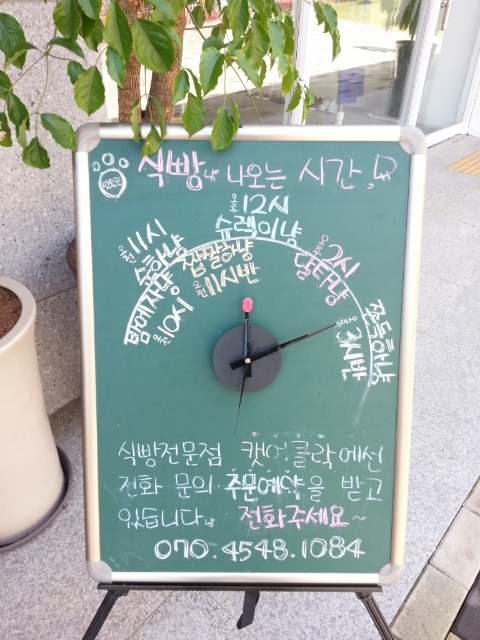 식빵냥 나오는 시간!?
오전 11시
슈하냥
밤에자냥
오전 10시
찹쌀숭냥
오전 11시반
오후 12시
슈렉이냥
오후 2시
달타냥
쫀득하냥
오후 3시반
식빵전문점 캣어클락에선
전화 문의·주문예약을 받고
있습니다냥 전화주세요~
070.4548.1084